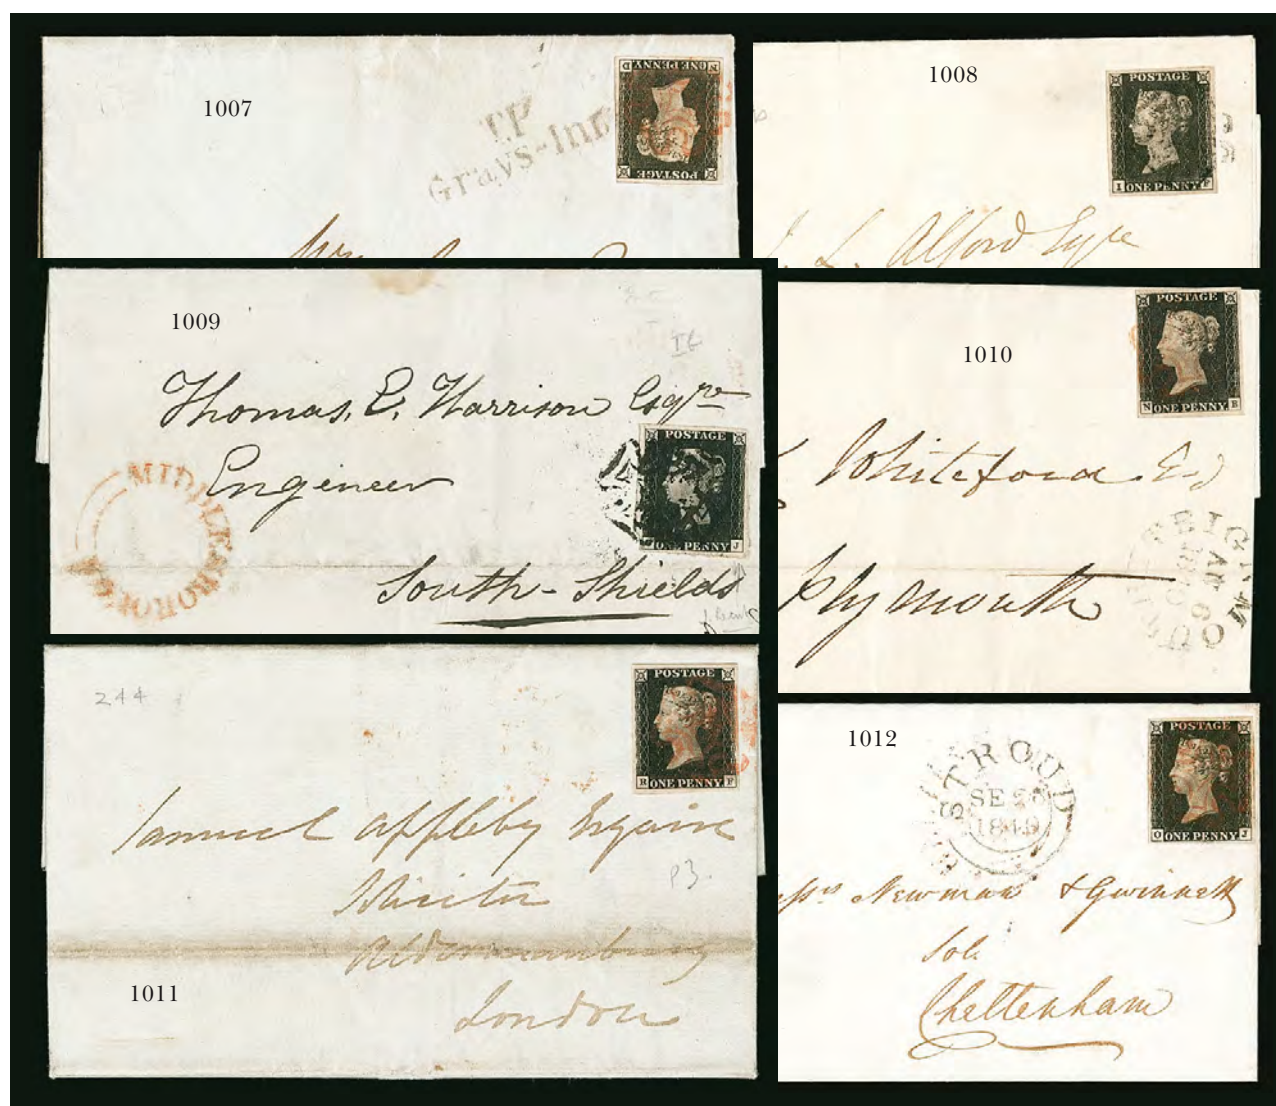 1007
T.P
Grays-Inn
D ONE PENNY
POSTAGE
1008
POSTAGE
I ONE PENNY F
L. Alford Esqre
1009
Thomas, E. Harrison Esqre
Engineer
South-Shields
MIDDLESBORO
POSTAGE
ONE PENNY J
1010
POSTAGE
N ONE PENNY E
Whiteford Esq
Plymouth
TEIGNMOUTH
1011
244
POSTAGE
R ONE PENNY F
Samuel Appleby Esquire
Solicitor
Aldermanbury
London
P3.
1012
STROUD
SE 26
POSTAGE
O ONE PENNY J
Newman & Gwinnett
Sol.
Cheltenham